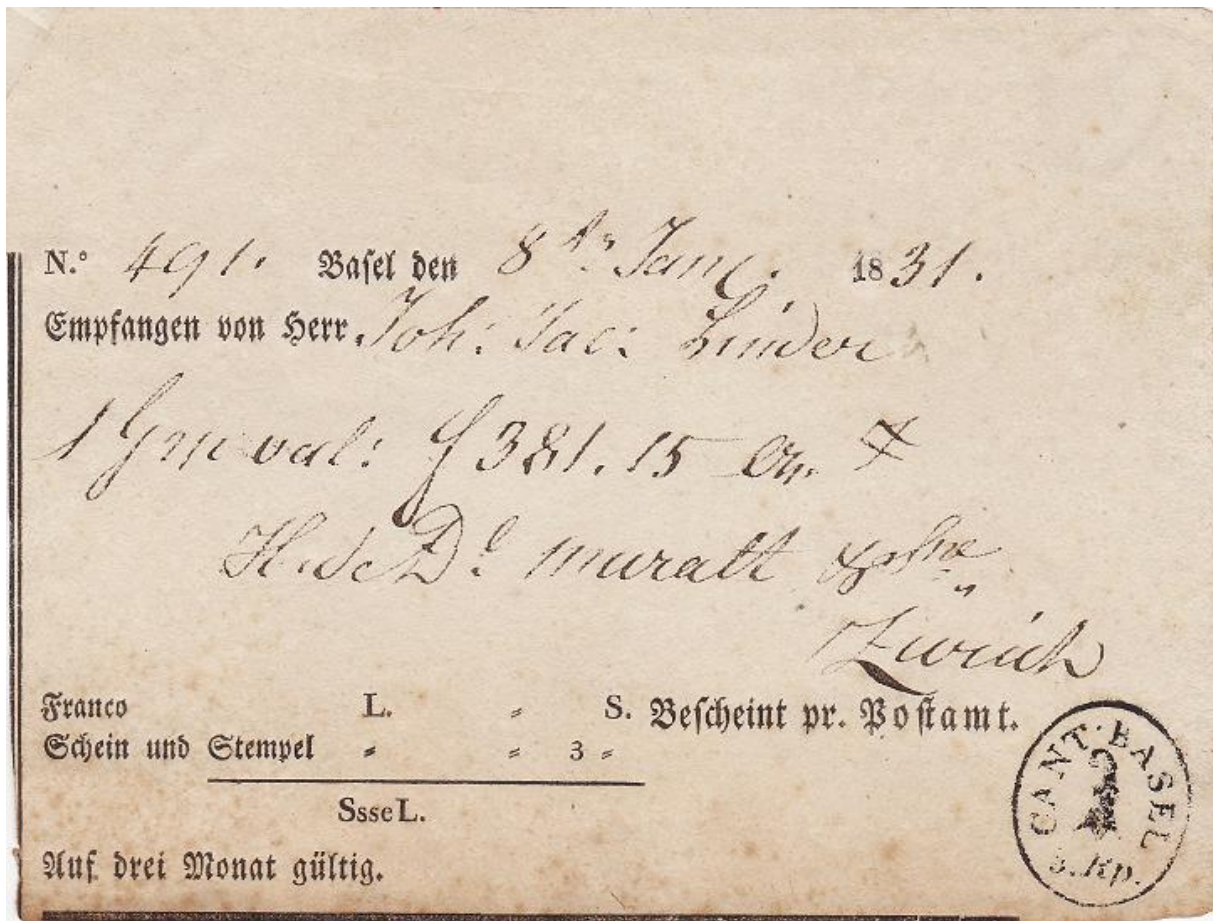 N.º 491. Basel den 8 Janr. 1831.
Empfangen von Herr Joh: Jac: Linder
1 Grp val: f 381.15
muralt
Zürich
Franco L. „ S. Bescheint pr. Postamt.
Schein und Stempel „ „ 3 „
Ssse L.
Auf drei Monat gültig.
CANT. BASEL
3. Rp.